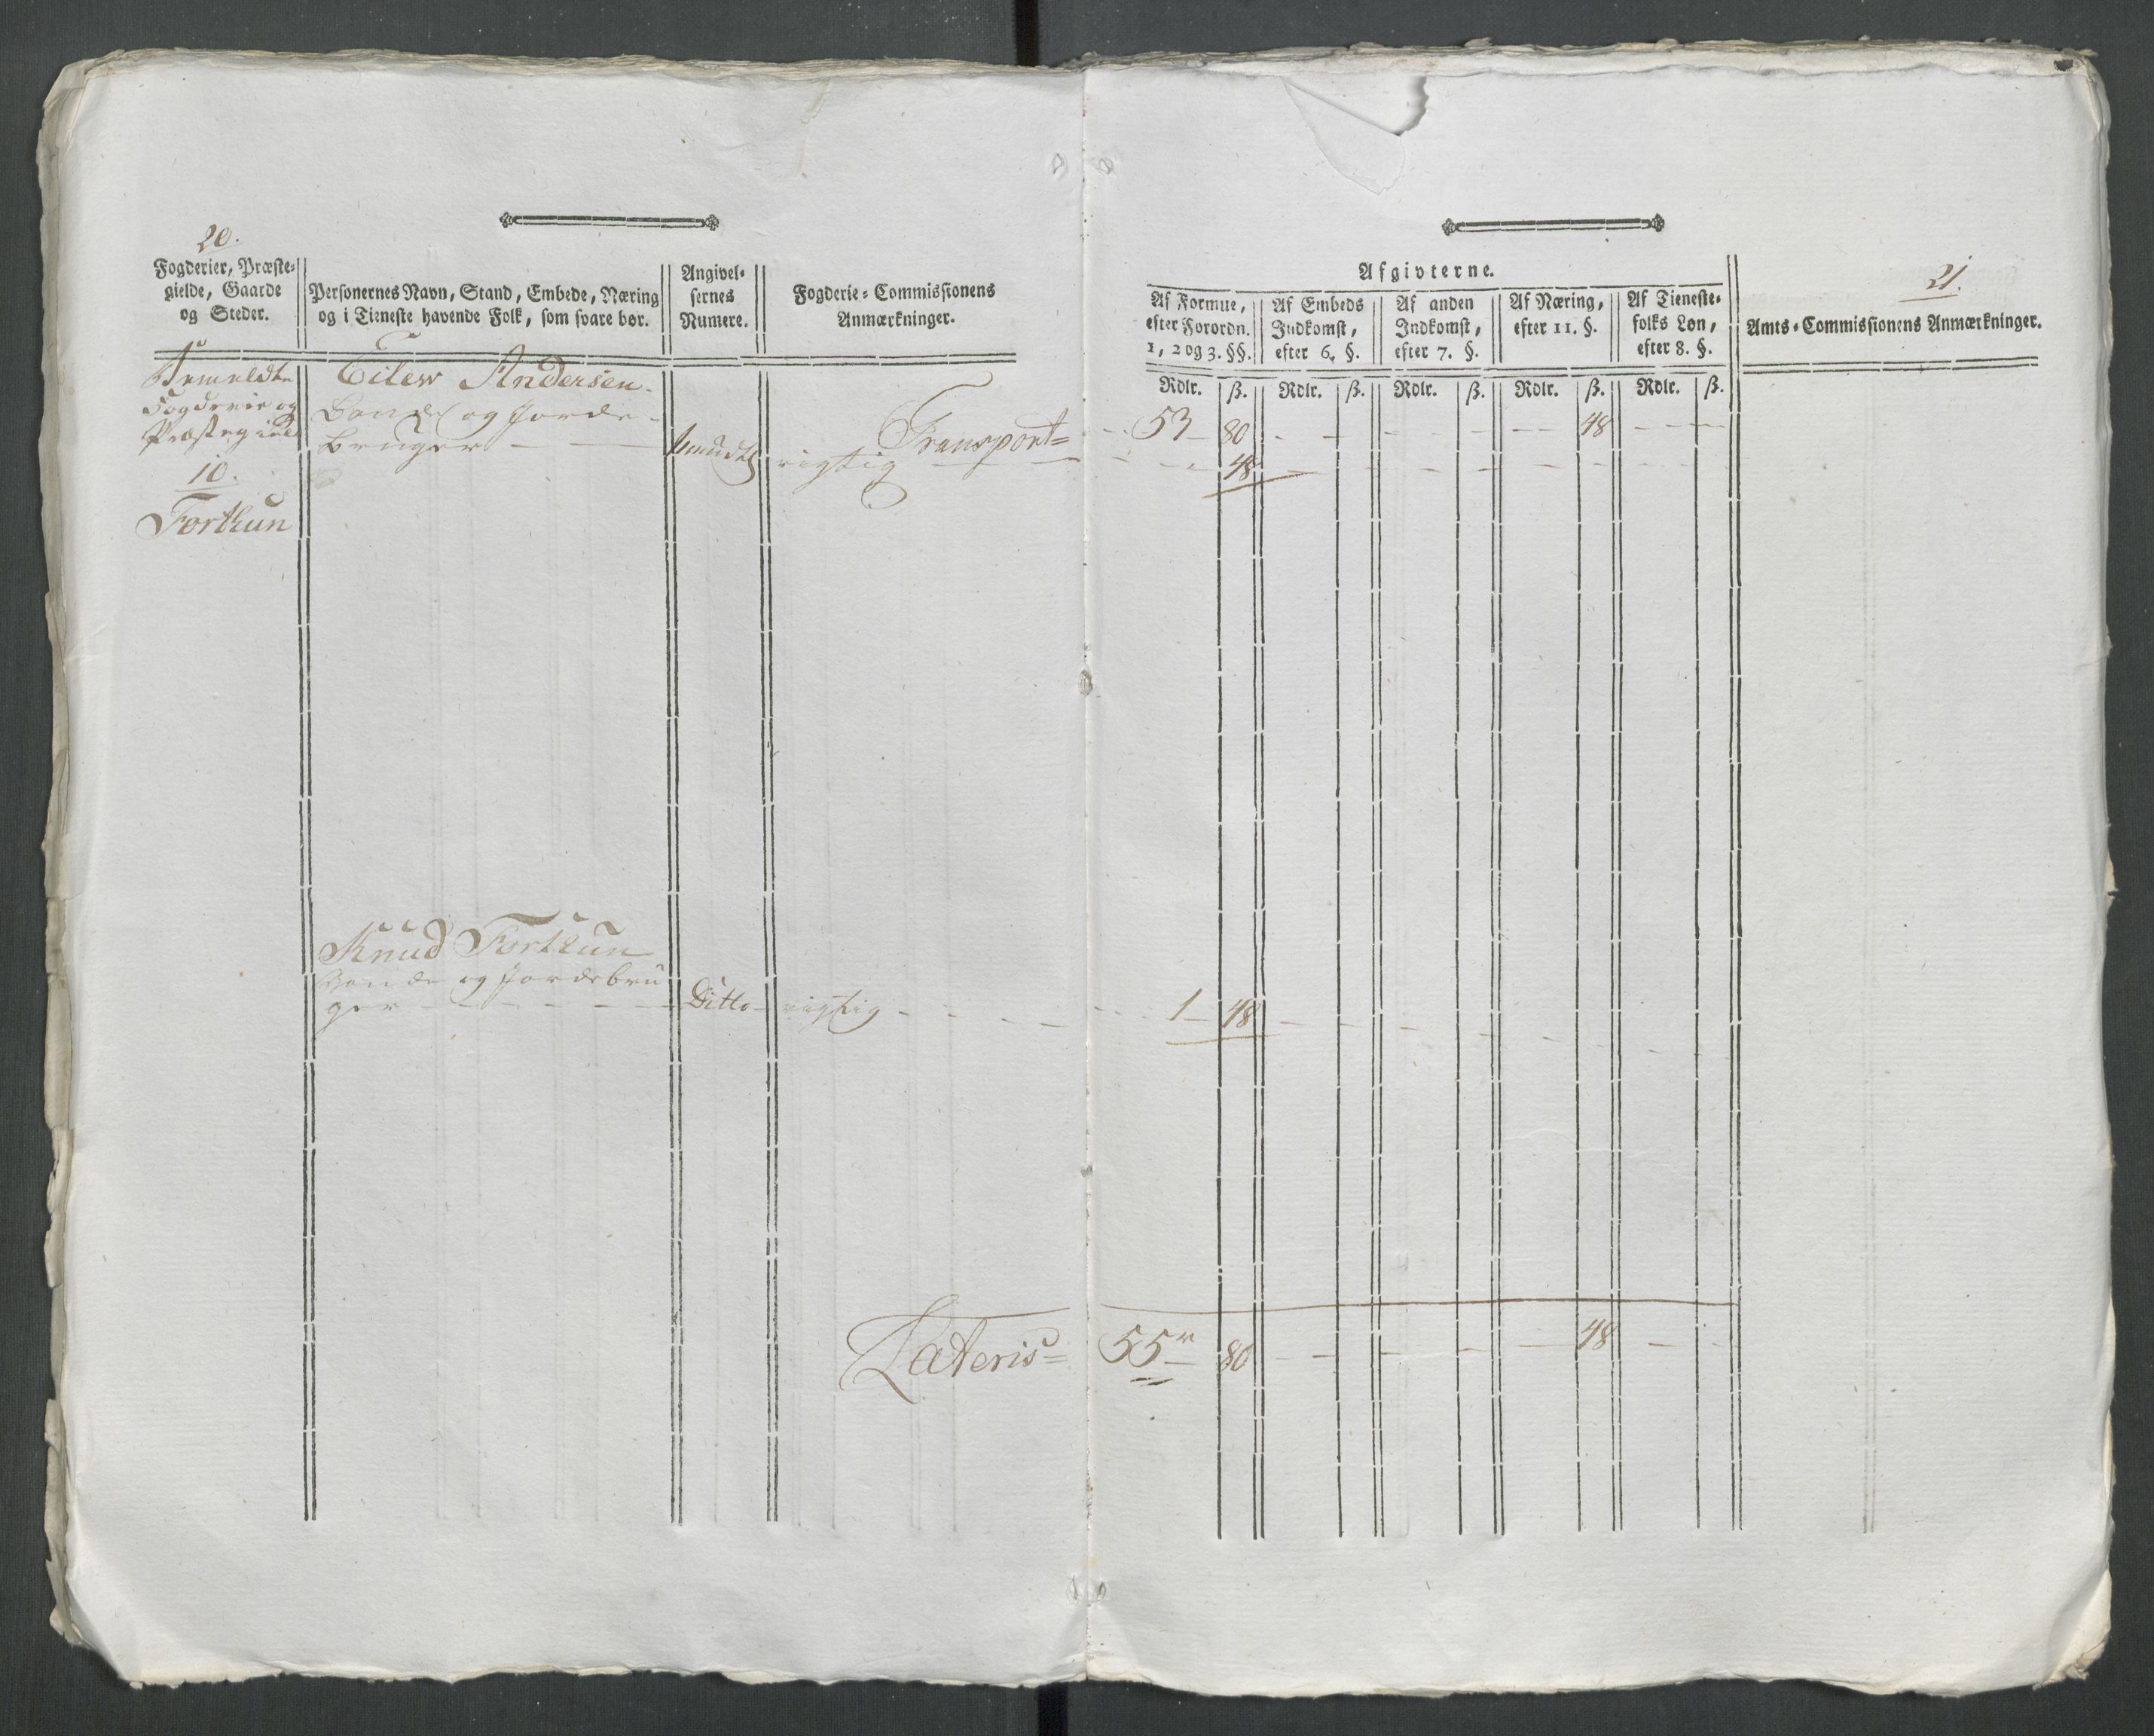 20.
Fogderier, Præste-
gielde, Gaarde
og Steder.
Personernes Navn, Stand, Embede, Næring
og i Tieneste havende Folk, som svare bør.
Angivel-
sernes
Numere.
Fogderie-Commissionens
Anmærkninger.
Bemeldte
Fogderie og
Præstegield
10.
Forthun
Eilew Andersen
Bonde og Jorde-
bruger
Transport
rigtig
Knud Forthun
Bonde og Jordebru
ger
Ditto
rigtig
Lateris
21.
Afgivterne.
Af Formue,
efter Forordn.
1, 2 og 3. §§.
Af Embeds
Indkomst,
efter 6. §.
Af anden
Indkomst,
efter 7. §.
Af Næring,
efter 11. §.
Af Tieneste-
folks Løn,
efter 8. §.
Amts-Commissionens Anmærkninger.
Rdlr. ß. Rdlr. ß. Rdlr. ß. Rdlr. ß. Rdlr. ß.
53 80 48
48
1 48
55 80 48